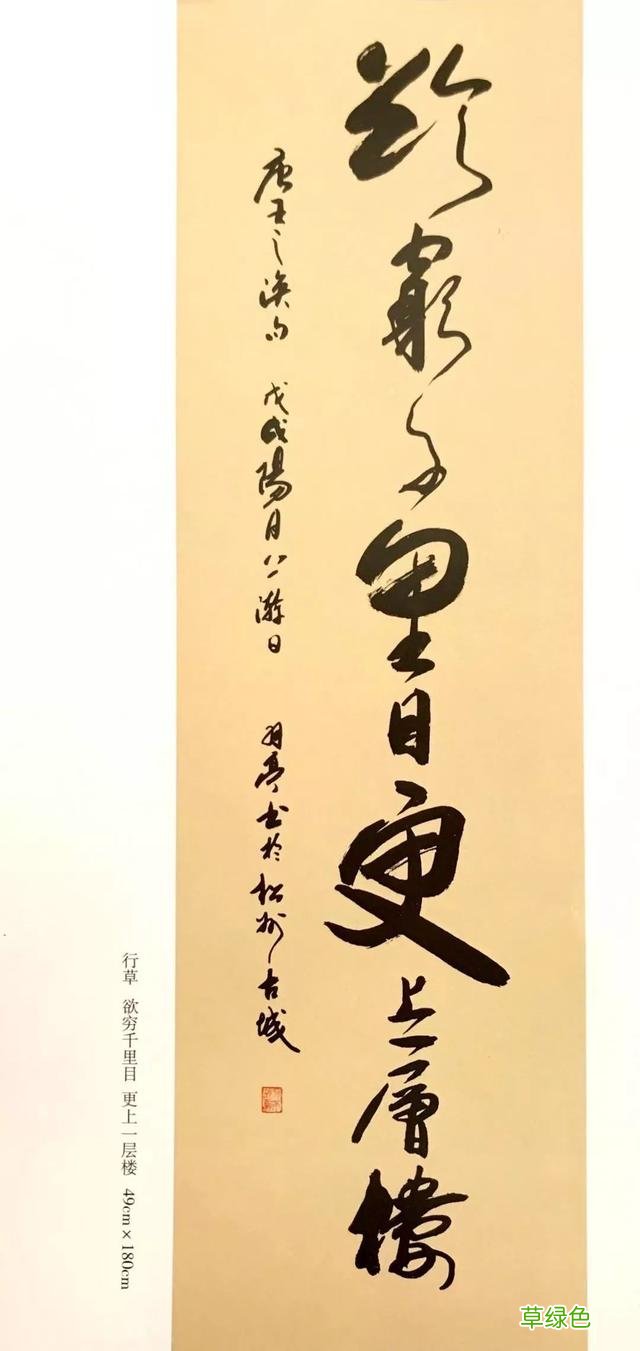 欲窮千里目更上一層樓
唐王之渙句 戊戌陽月 游日 羽亭书於松州古城
行草 欲穷千里目 更上一层楼 49cm×180cm
草绿色